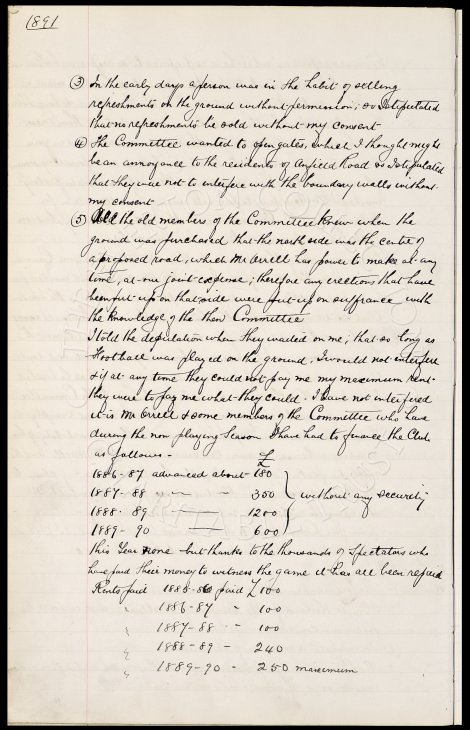 1891
③ In the early days a person was in the habit of selling
refreshments on the ground without permission; so I stipulated
that no refreshments be sold without my consent
④ The Committee wanted to open gates, which I thought might
be an annoyance to the residents of Anfield Road so I stipulated
that they were not to interfere with the boundary walls without
my consent
⑤ All the old members of the Committee knew when the
ground was purchased that the north side was the centre of
a proposed road, which Mr Orrell has power to make at any
time, at our joint expense; therefore any erections that have
been put up on that side were put up on suffrance with
the knowledge of the then Committee
I told the deputation when they waited on me; that as long as
Football was played on the ground, I would not interfere
& if at any time they could not pay me my maximum rent
they were to pay me what they could. I have not interfered
it is Mr Orrell & some members of the Committee who have
during the non playing Season I have had to finance the Club
as follows - £
1886-87 advanced about 180
1887-88 " " - 350 } without any security
1888-89 - 1200
1889-90 - 600
this Year none but thanks to the thousands of Spectators who
have paid their money to witness the game it has all been repaid
Rents paid 1885-86 paid £100
" 1886-87 - 100
" 1887-88 - 100
" 1888-89 - 240
" 1889-90 - 250 maximum